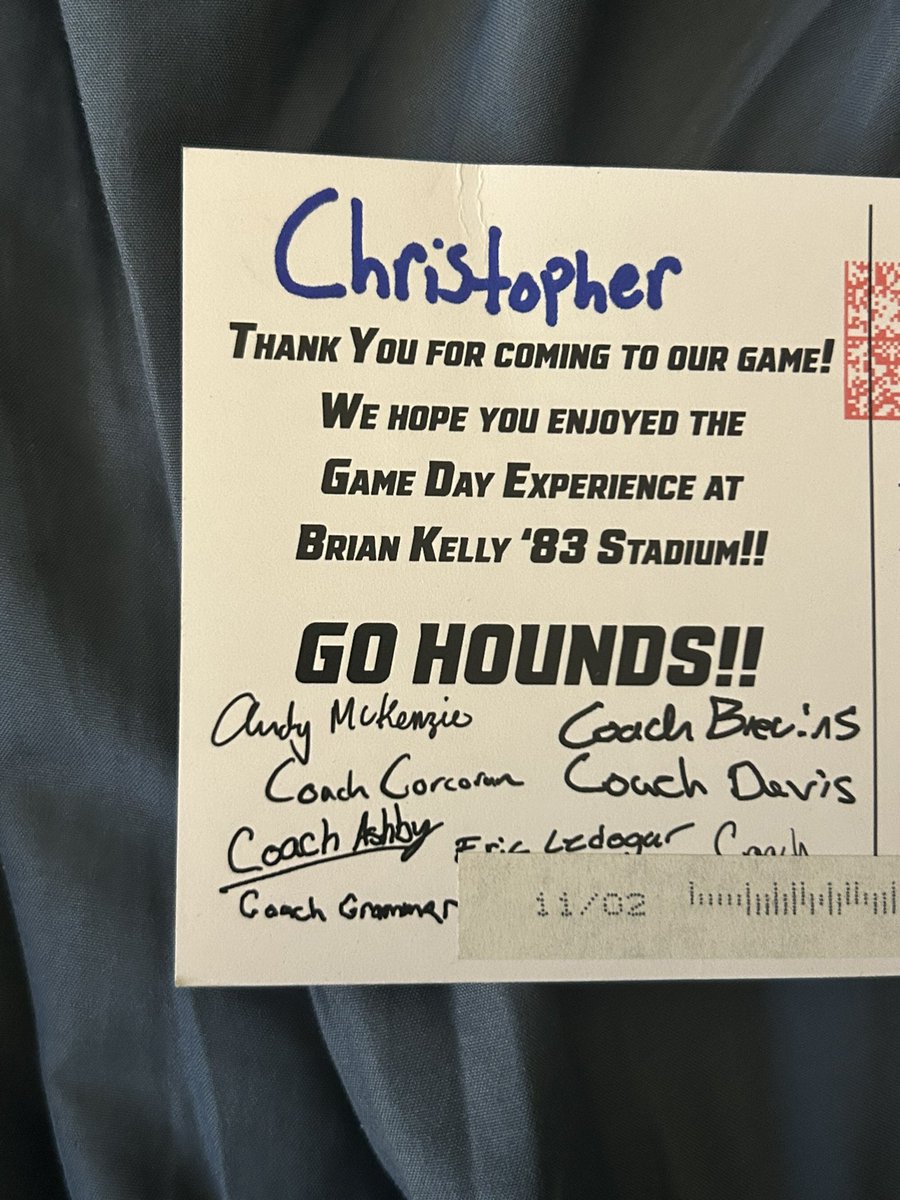 Christopher
THANK YOU FOR COMING TO OUR GAME!
WE HOPE YOU ENJOYED THE
GAME DAY EXPERIENCE AT
BRIAN KELLY ‘83 STADIUM!!
GO HOUNDS!!
Andy McKenzie
Coach Brevins
Coach Corcoran
Coach Davis
Coach Ashby
Eric Ledogar
Coach
Coach Grammar
11/02